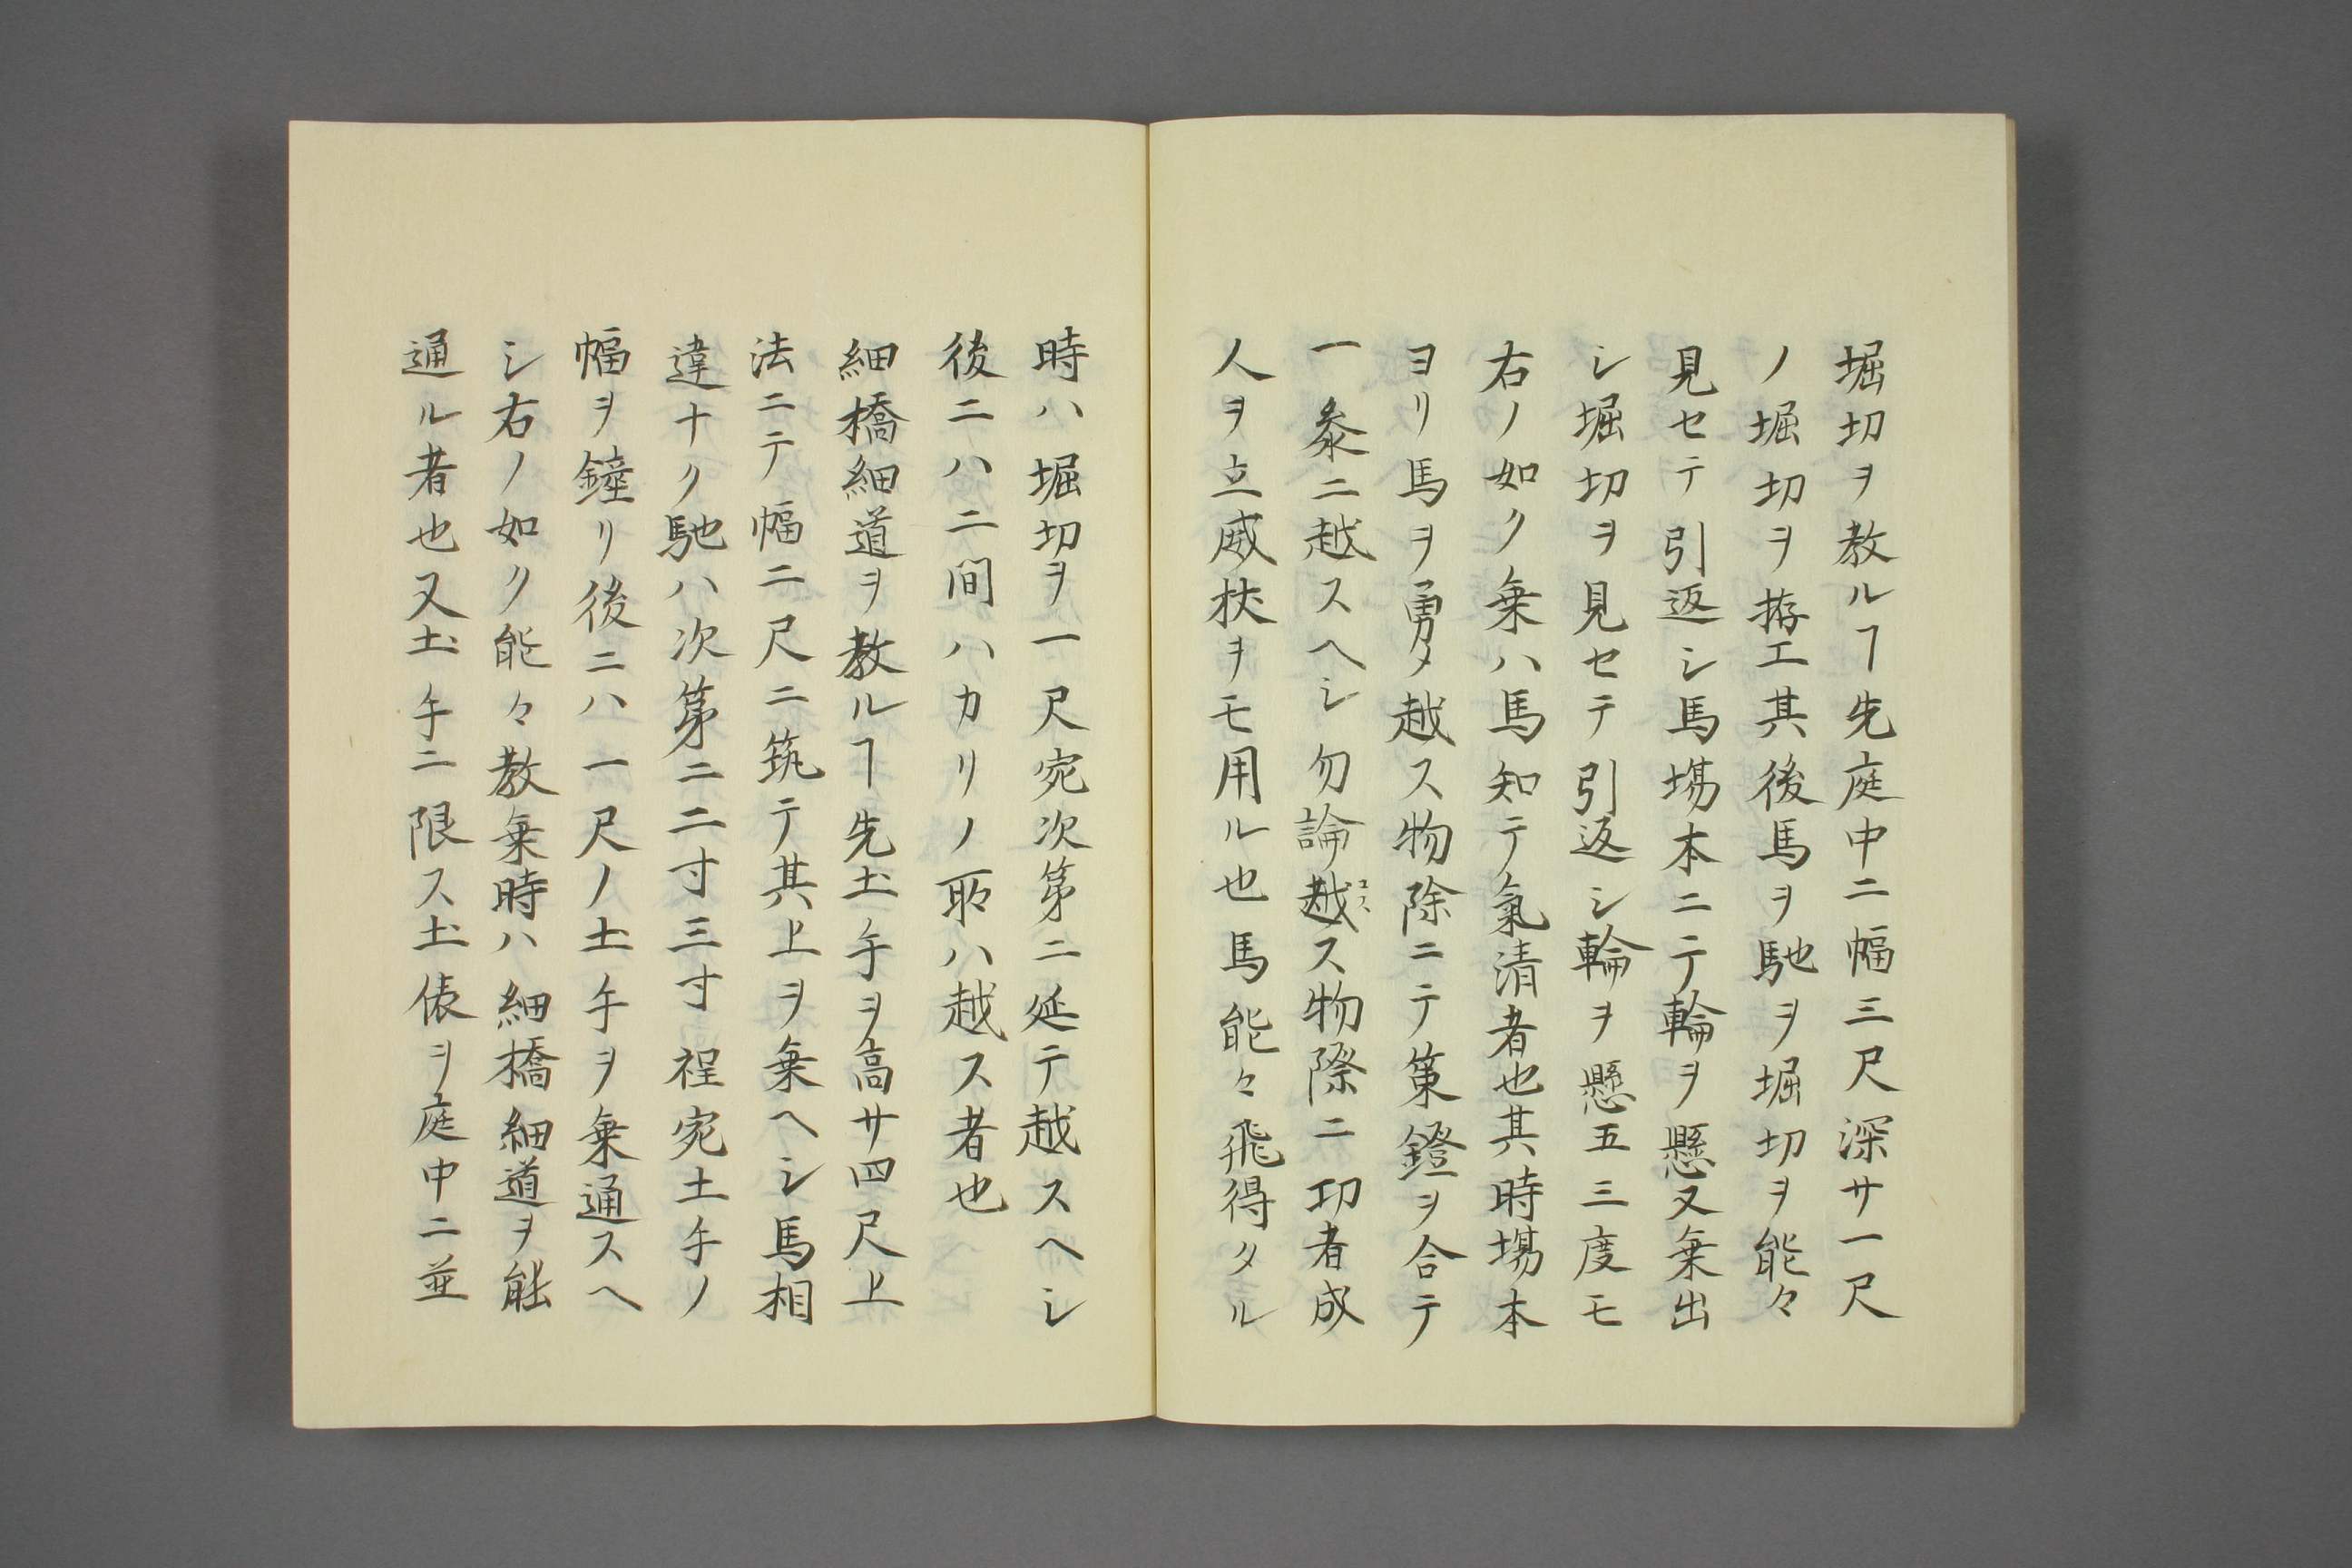 堀切ヲ教ルヿ先庭中ニ幅三尺深サ一尺
ノ堀切ヲ拵エ其後馬ヲ馳ヲ堀切ヲ能々
見セテ引返シ馬場本ニテ輪ヲ懸又乗出
シ堀切ヲ見セテ引返シ輪ヲ懸五三度モ
右ノ如ク乗ハ馬知テ氣清者也其時場本
ヨリ馬ヲ勇メ越ス物除ニテ策鐙ヲ合テ
一叅ニ越スヘシ勿論越コスス物際ニ功者成
人ヲ立威杖ヲモ用ル也馬能々飛得タル
時ハ堀切ヲ一尺宛次第ニ延テ越スヘシ
後ニハ二間ハカリノ所ハ越ス者也
細橋細道ヲ教ルヿ先土手ヲ高サ四尺上
法ニテ幅二尺ニ筑テ其上ヲ乗ヘシ馬相
違ナク馳ハ次第ニ二寸三寸程宛土手ノ
幅ヲリ後ニハ一尺ノ土手ヲ乗通スヘ
シ右ノ如ク能々教乗時ハ細橋細道ヲ能
通ル者也又土手ニ限ス土俵ヲ庭中ニ並